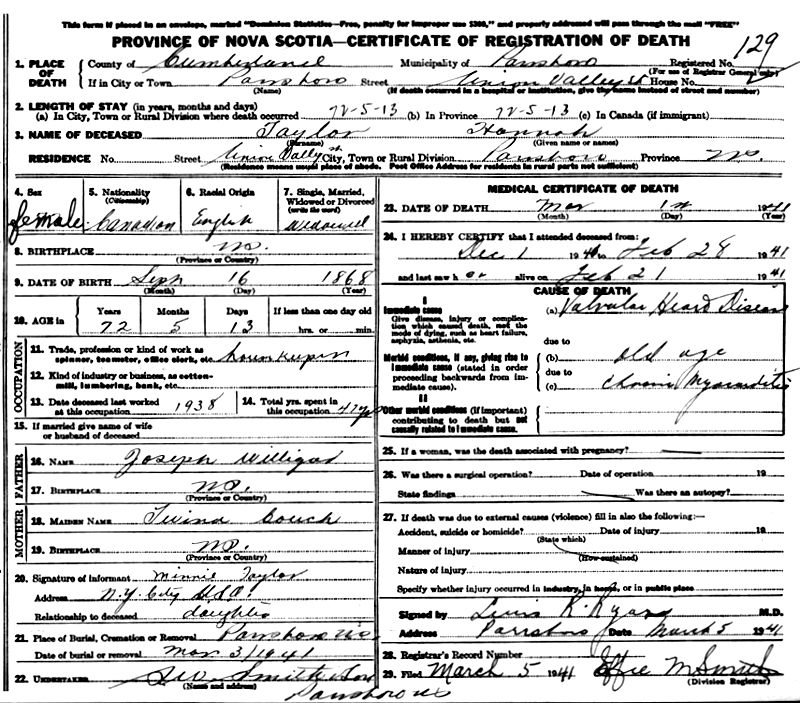 This form if placed in an envelope, marked "Dominion Statistics—Free, penalty for improper use $300," and properly addressed will pass through the mail "FREE"
PROVINCE OF NOVA SCOTIA—CERTIFICATE OF REGISTRATION OF DEATH
129
1. PLACE OF DEATH
County of Cumberland Municipality of Parrsboro Registered No.
(For use of Registrar General only)
If in City or Town Parrsboro Street Union Valley St House No.
(Name) (If death occurred in a hospital or institution, give the name instead of street and number)
2. LENGTH OF STAY (in years, months and days)
(a) In City, Town or Rural Division where death occurred 72-5-13 (b) In Province 72-5-13 (c) In Canada (if immigrant)
3. NAME OF DECEASED Taylor Hannah
(Surname) (Given name or names)
RESIDENCE No. Street Union Valley St City, Town or Rural Division Parrsboro Province N.S.
(Residence means usual place of abode. Post Office Address for residents in rural parts not sufficient)
4. Sex
female
5. Nationality
(Citizenship)
Canadian
6. Racial Origin
English
7. Single, Married, Widowed or Divorced
(write the word)
Widowed
8. BIRTHPLACE N.S.
(Province or Country)
9. DATE OF BIRTH Sept 16 1868
(Month) (Day) (Year)
10. AGE in
Years Months Days If less than one day old
72 5 13 hrs. or min.
OCCUPATION
11. Trade, profession or kind of work as
spinner, teamster, office clerk, etc.
12. Kind of industry or business, as cotton-
mill, lumbering, bank, etc.
13. Date deceased last worked at this occupation 1938
14. Total yrs. spent in this occupation 47
15. If married give name of wife
or husband of deceased
FATHER
16. NAME Joseph
17. BIRTHPLACE N.S.
(Province or Country)
MOTHER
18. MAIDEN NAME Couch
19. BIRTHPLACE N.S.
(Province or Country)
20. Signature of informant Minnie Taylor
Address N.Y. City U.S.A.
Relationship to deceased daughter
21. Place of Burial, Cremation or Removal Parrsboro N.S.
Date of burial or removal Mar 3/1941
22. UNDERTAKER Smith & Son
(Name and address)
Parrsboro N.S.
MEDICAL CERTIFICATE OF DEATH
23. DATE OF DEATH Mar 1st 1941
(Month) (Day) (Year)
24. I HEREBY CERTIFY that I attended deceased from:
Dec 1 1940 to Feb 28 1941
and last saw her alive on Feb 21 1941
CAUSE OF DEATH
I
Immediate cause
Give disease, injury or complica-
tion which caused death, not the
mode of dying, such as heart failure,
asphyxia, asthenia, etc.
(a) Valvular Heart Disease
due to
Morbid conditions, if any, giving rise to
immediate cause (stated in order
proceeding backwards from im-
mediate cause).
(b) old age
due to
(c) Chronic Myocarditis
II
Other morbid conditions (if important)
contributing to death but not
causally related to immediate cause.
25. If a woman, was the death associated with pregnancy?
26. Was there a surgical operation? Date of operation 19
State findings Was there an autopsy?
27. If death was due to external causes (violence) fill in also the following:—
Accident, suicide or homicide? Date of injury 19
(State which)
Manner of injury
(How sustained)
Nature of injury
Specify whether injury occurred in industry, in home, or in public place
Signed by R. Ryan M.D.
Address Parrsboro Date March 5 1941
28. Registrar's Record Number
29. Filed March 5 1941 Effie M Smith
(Division Registrar)